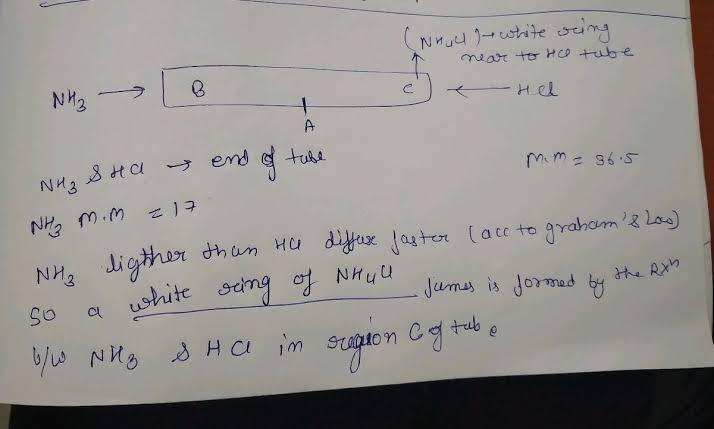 (NH4Cl)→white ring
near to HCl tube
NH3 → B C ← HCl
A
NH3 & HCl → end of tube
M.M = 36.5
NH3 M.M = 17
NH3 ligther than HCl diffuse faster (acc to graham's Law)
so a white ring of NH4Cl fumes is formed by the RXn
b/w NH3 & HCl in region C of tube